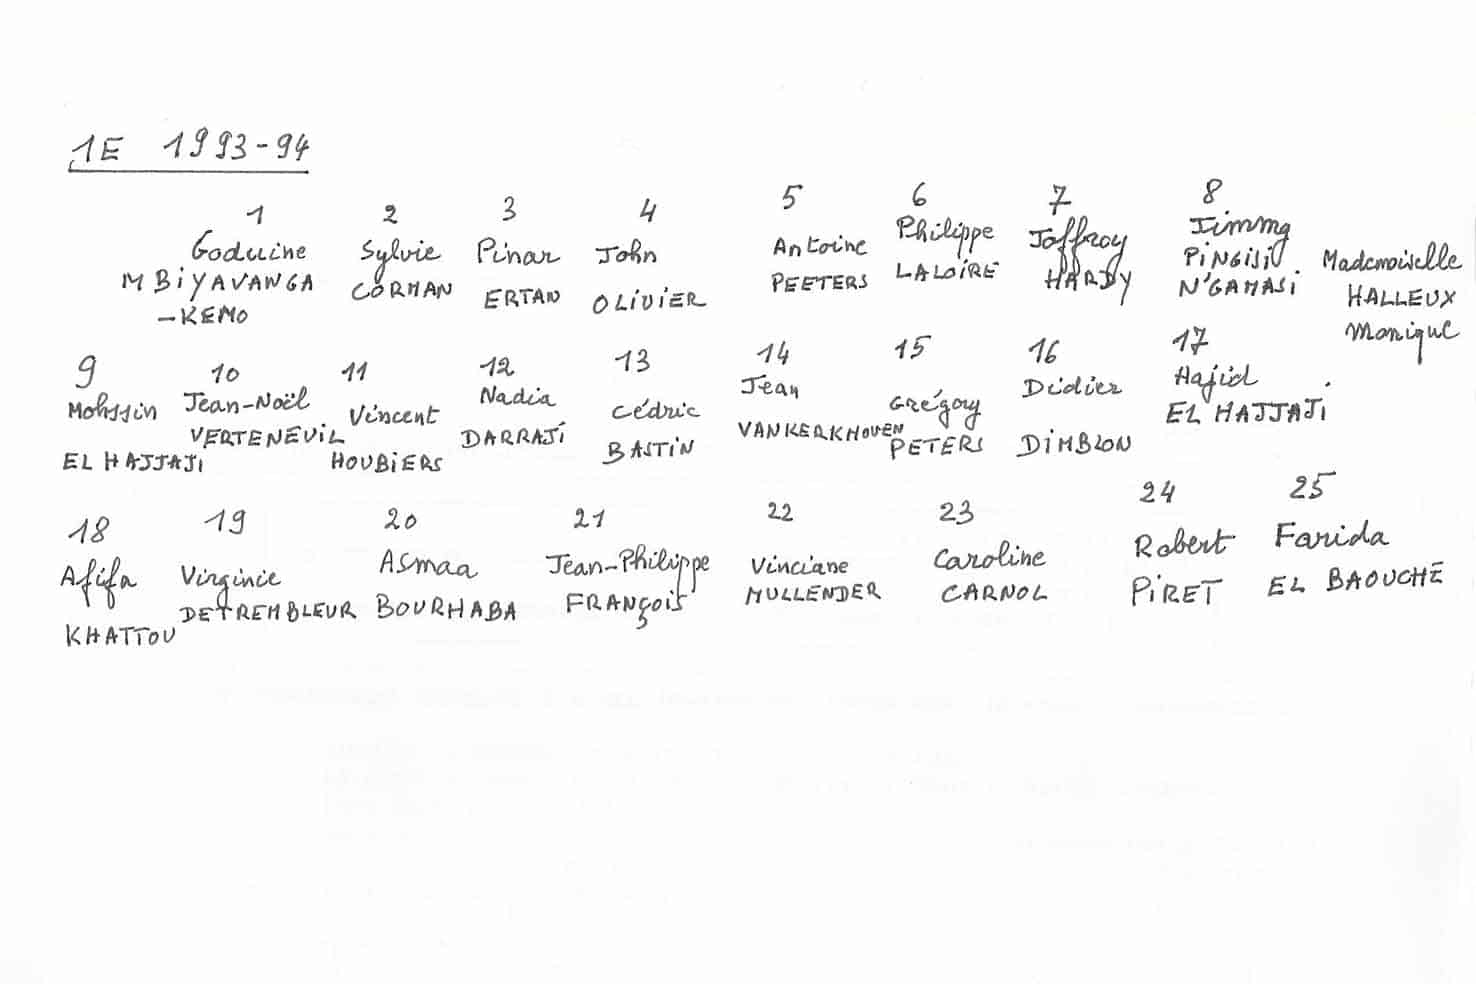 1E 1993-94
1 2 3 4 5 6 7 8
Goduine Sylvie Pinar John Antoine Philippe Joffroy Jimmy
M BiYAVANGA CORMAN ERTAN OLIVIER PEETERS LALOIRE HARDY PiNGiSi Mademoiselle
-KEMO N'GAMASi HALLEUX
Monique
9 10 11 12 13 14 15 16 17
Mohssin Jean-Noël Vincent Nadia Cédric Jean Grégory Didier Hajid
EL HAJJAJi VERTENEUIL HOUBIERS DARRAJI BASTIN VANKERKHOVEN PETERS DIMBLON EL HAJJAJi
18 19 20 21 22 23 24 25
Afifa Virginie Asmaa Jean-Philippe Vinciane Caroline Robert Farida
KHATTOU DETREMBLEUR BOURHABA FRANÇOIS MULLENDER CARNOL PIRET EL BAOUCHE